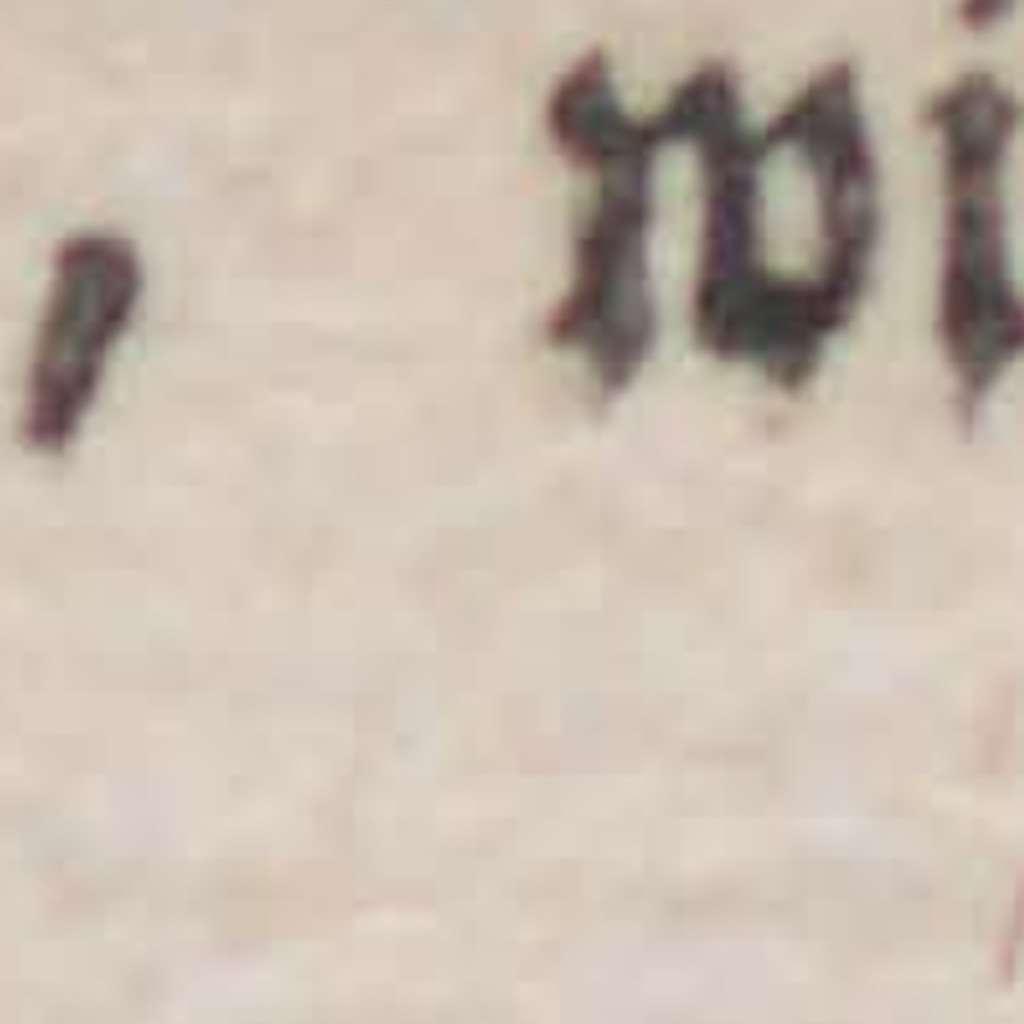 , wi